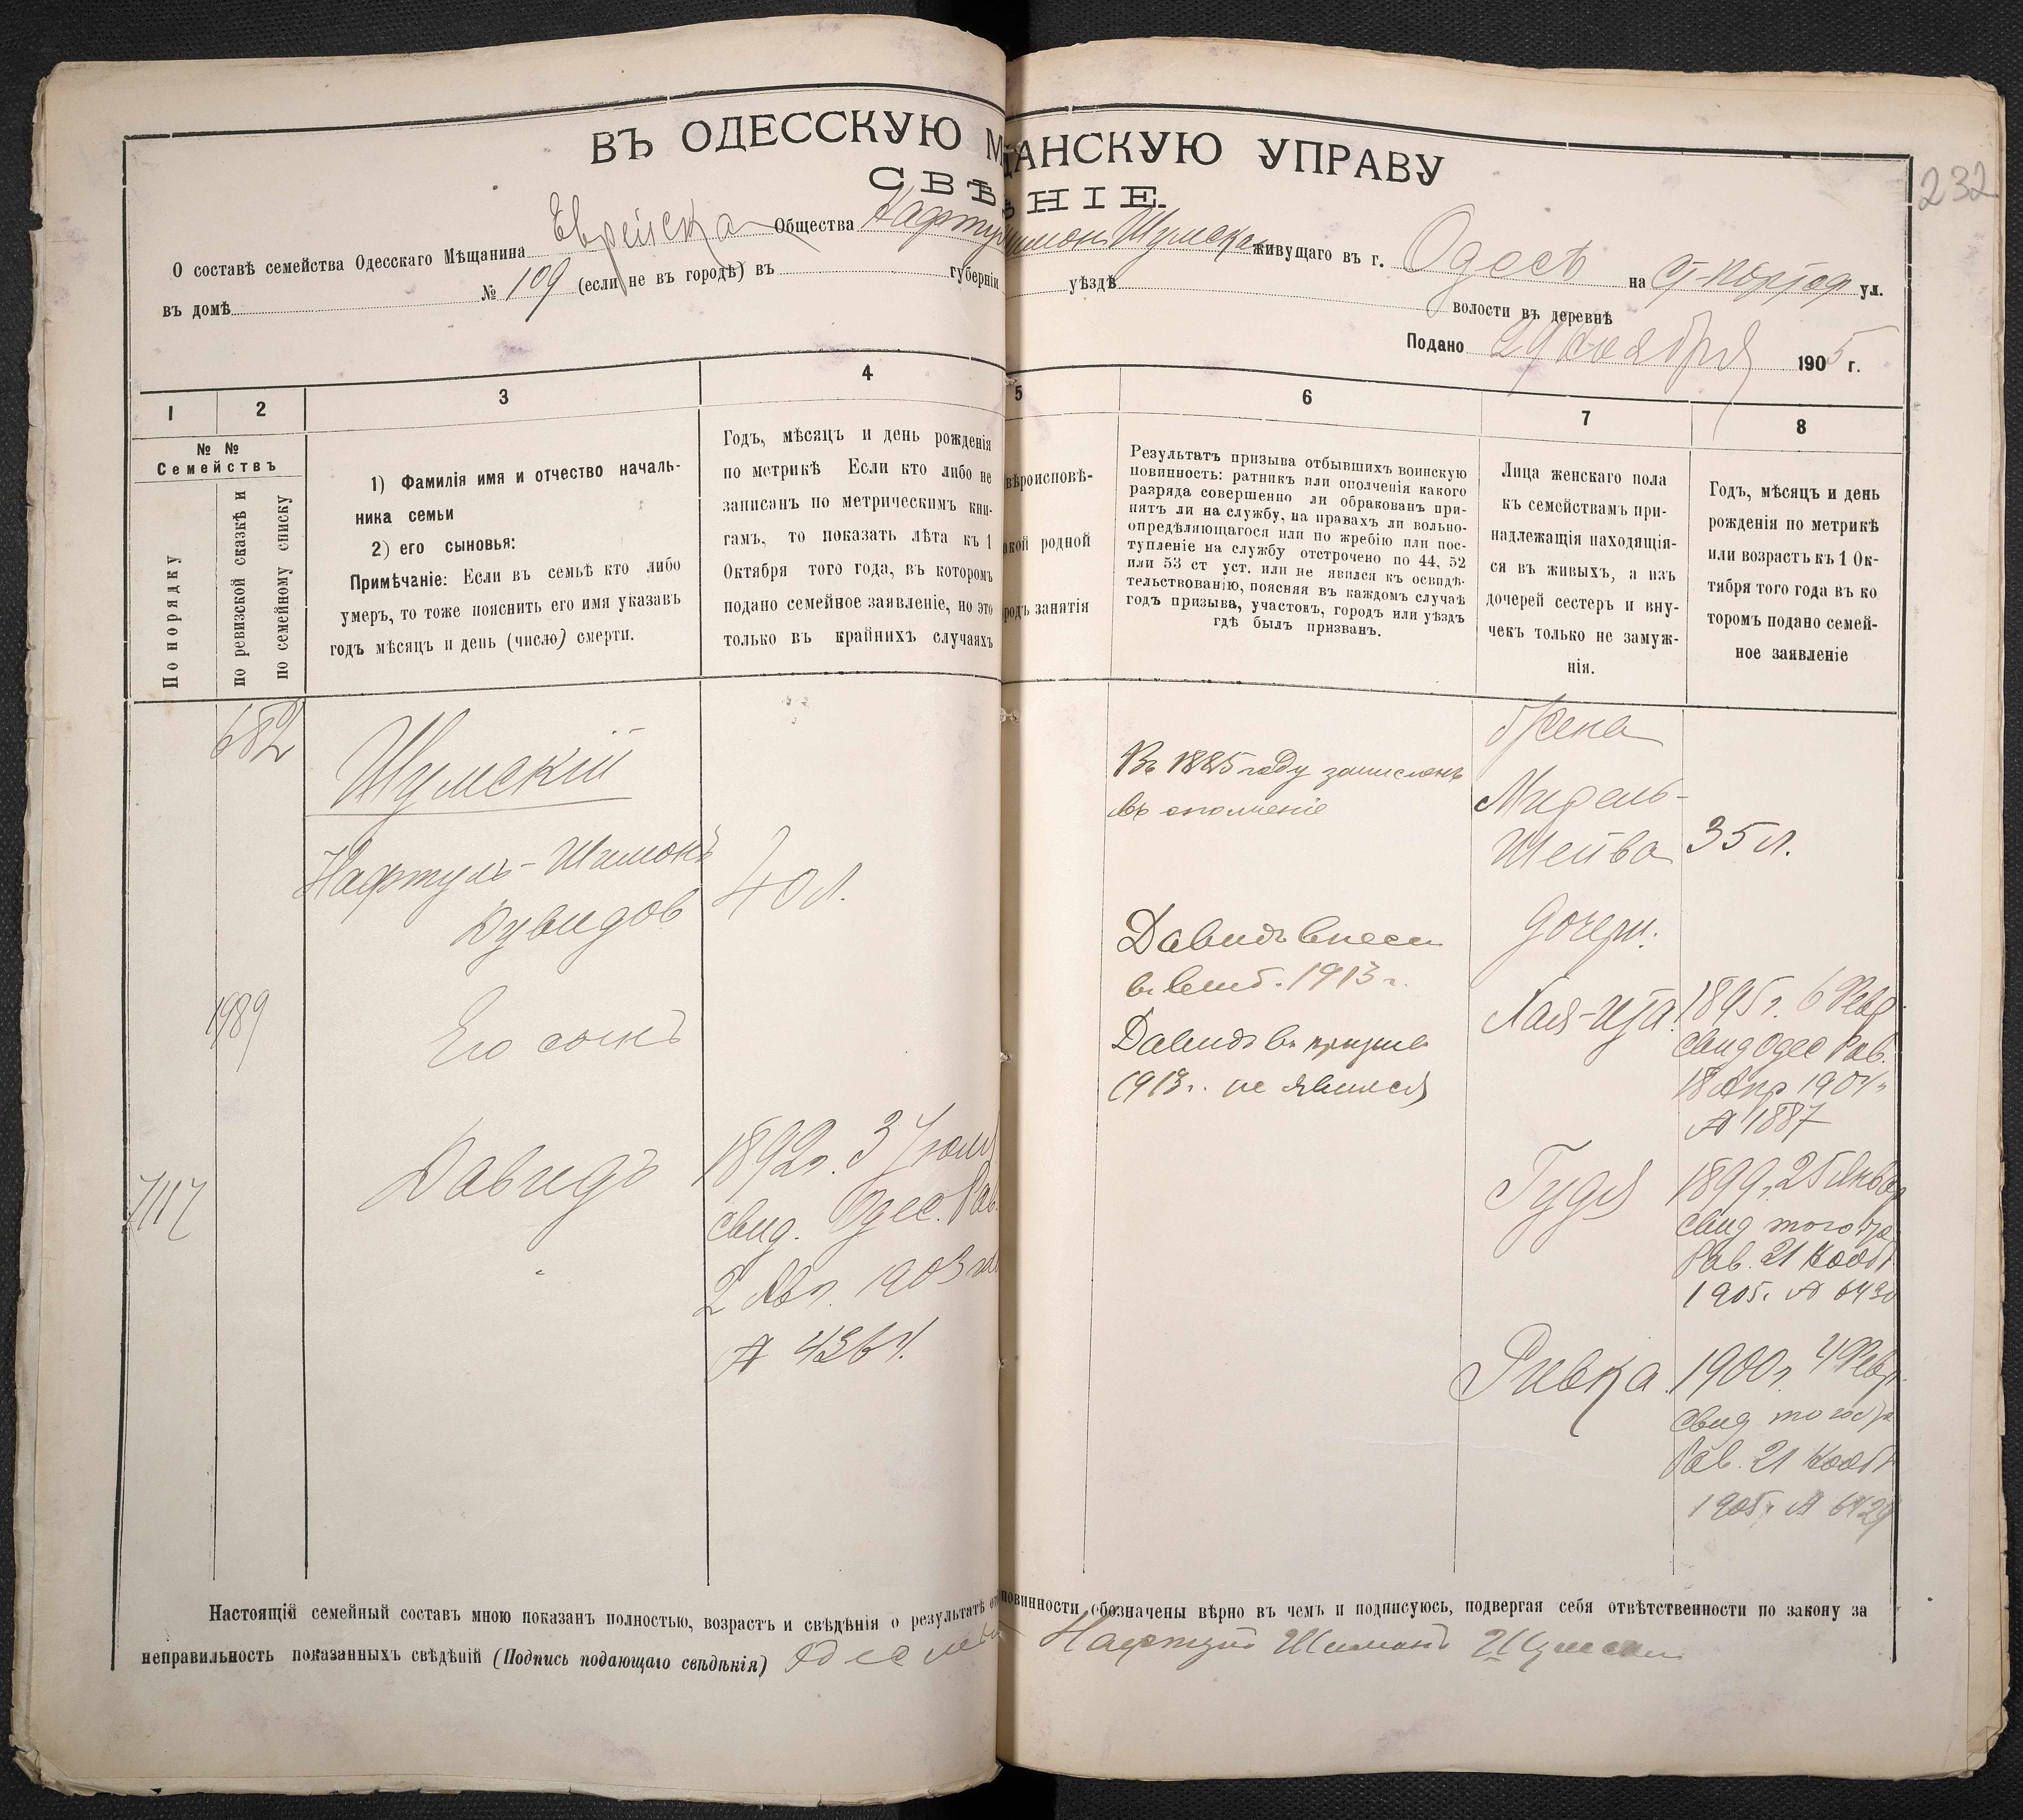 ВЪ ОДЕССКУЮ М ЩАНСКУЮ УПРАВУ
СВѢ НІЕ.
232
О составѣ семейства Одесскаго Мѣщанина Еврейска Общества Нафту Шимонъ Шумска живущаго въ г. Одесѣ на ул.
въ домѣ № 109 (если не въ городѣ) въ губерніи уѣздѣ волости въ деревнѣ
Подано 29 Ноября 1905 г.
1 2 3 4 5 6 7 8
№ №
Семействъ
По порядку
по ревизской сказкѣ и
по семейному списку
1) Фамилія имя и отчество началь-
ника семьи
2) его сыновья:
Примѣчаніе: Если въ семьѣ кто либо
умеръ, то тоже пояснить его имя указавъ
годъ мѣсяцъ и день (число) смерти.
Годъ, мѣсяцъ и день рожденія
по метрикѣ Если кто либо не
записанъ по метрическимъ кни-
гамъ, то показать лѣта къ 1
Октября того года, въ которомъ
подано семейное заявленіе, но это
только въ крайнихъ случаяхъ
вѣроисповѣ-
акой родной
родъ занятія
Результатъ призыва отбывшихъ воинскую
повинность: ратникъ или ополченія какого
разряда совершенно ли обракованъ при-
нятъ ли на службу, на правахъ ли вольно-
опредѣляющагося или по жребію или пос-
тупленіе на службу отстрочено по 44, 52
или 53 ст уст. или не явился къ освидѣ-
тельствованію, поясняя въ каждомъ случаѣ
годъ призыва, участокъ, городъ или уѣздъ
гдѣ былъ призванъ.
Лица женскаго пола
къ семействамъ при-
надлежащія находящія-
ся въ живыхъ, а изъ
дочерей сестеръ и вну-
чекъ только не замуж-
нія.
Годъ, мѣсяцъ и день
рожденія по метрикѣ
или возрастъ къ 1 Ок-
тября того года въ ко
торомъ подано семей-
ное заявленіе
682
Шумскій
Нафтуль-Шимонъ
Дувидов
40 л.
1989
Его сынъ
7117
Давидъ
1892 г. 3 Іюля
свид. Одес. Рав.
2 1903
№ 4364.
Въ 1885 году зачисленъ
въ ополченіе
Давидъ внесен
1913 г.
Давидъ въ призыв
1913 г. не явился
Жена
Мирель-
Шейва 35 л.
Дочери:
Хая-Ита 1895 г. 6 Февр.
свид Одес Рав.
18 Апр 1904
№ 1887
Гудя 1899 г. 25 Январ
свид того же
Рав. 21 Нояб
1905. № 6430
Ривка 1900 г. 4 Февр.
свид того же
Рав. 21 Нояб
1905 г. № 6429
Настоящій семейный составъ мною показанъ полностью, возрастъ и свѣдѣнія о результатѣ от повинности обозначены вѣрно въ чемъ и подписуюсь, подвергая себя отвѣтственности по закону за
неправильность показанныхъ свѣдѣній (Подпись подающаго свѣдѣнія) Нафтул Шимонъ Шумски